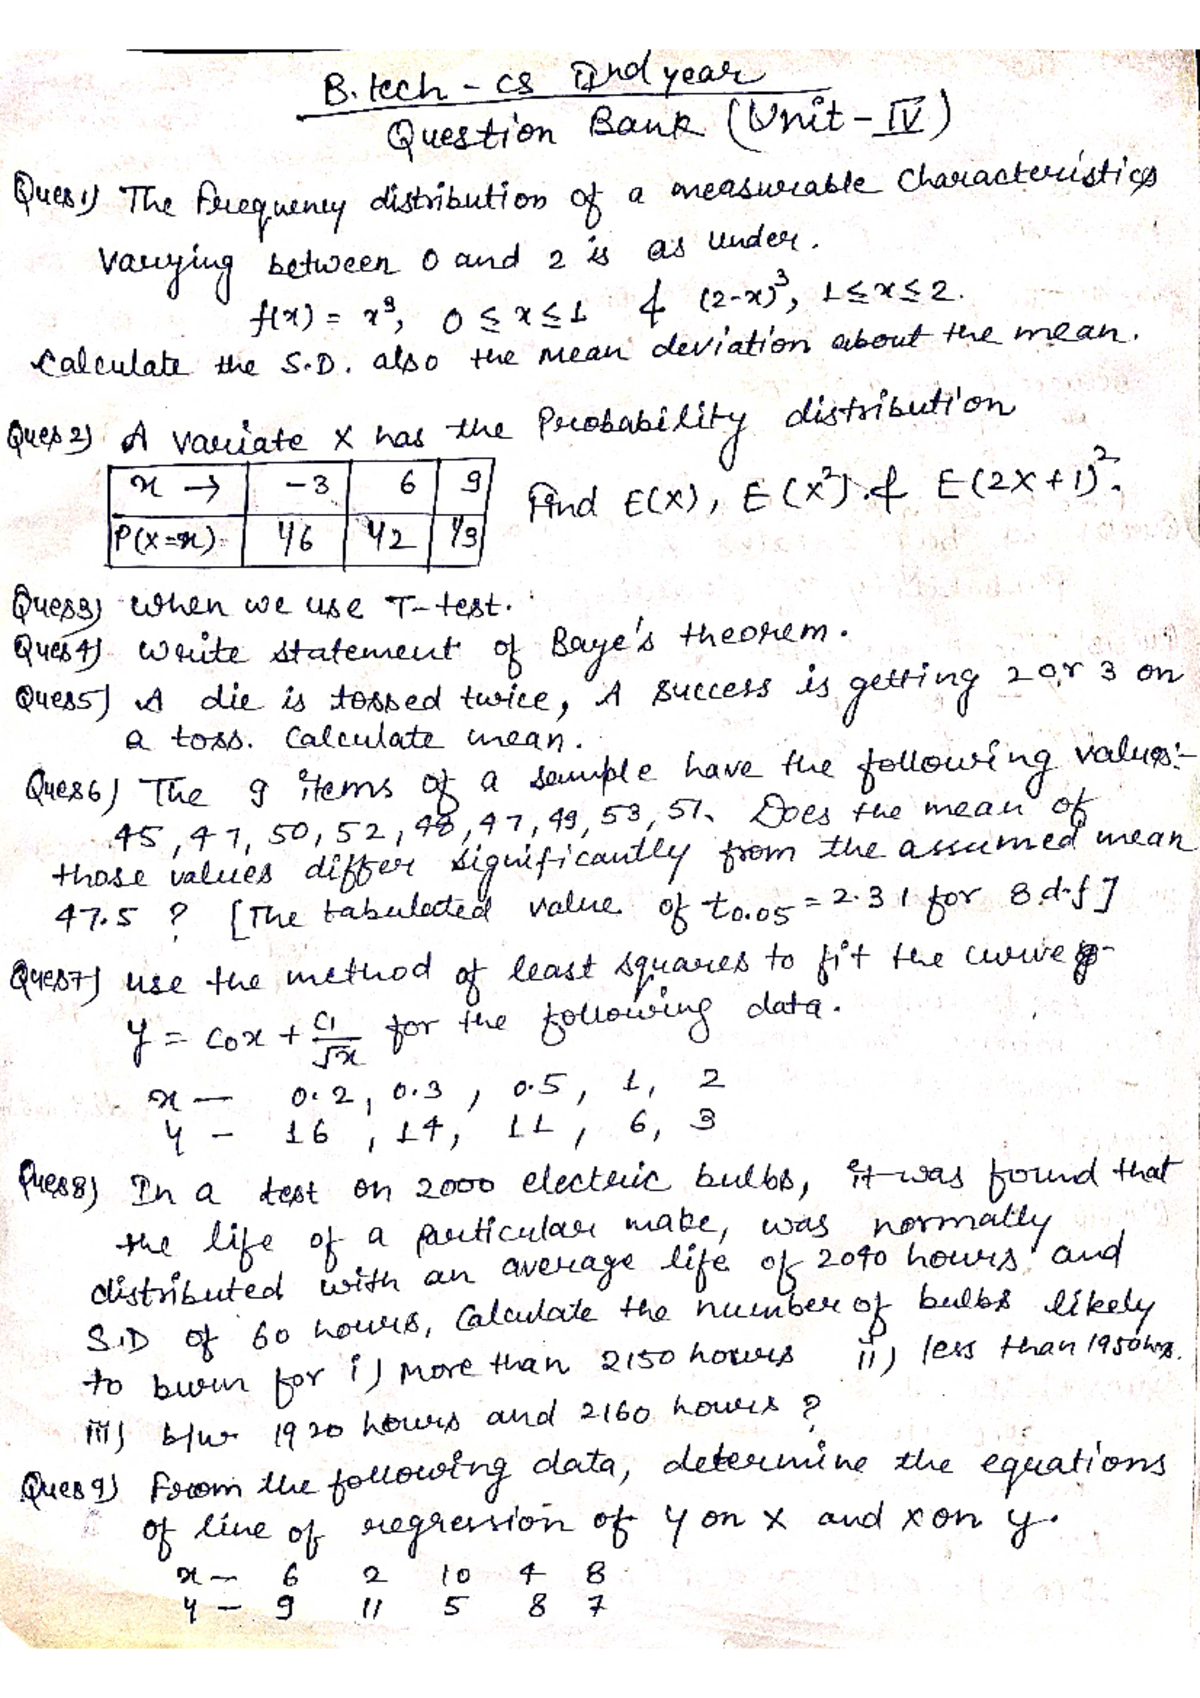 B.tech - CS IInd year
Question Bank (Unit - IV)
Ques 1) The frequency distribution of a measurable Characteristics
varying between 0 and 2 is as under.
f(x) = x³, 0 ≤ x ≤ 1 & (2-x)³, 1 ≤ x ≤ 2.
Calculate the S.D. also the Mean deviation about the mean.
Ques 2) A variate X has the Probability distribution
x → -3 6 9
P(X=x) 1/6 1/2 1/3
Find E(X), E(X²) & E(2X+1)².
Ques 3) When we use T-test.
Ques 4) Write statement of Baye's theorem.
Ques 5) A die is tossed twice, A success is getting 2 or 3 on
a toss. Calculate mean.
Ques 6) The 9 items of a sample have the following values:-
45, 47, 50, 52, 48, 47, 49, 53, 51. Does the mean of
those values differ significantly from the assumed mean
47.5 ? [The tabulated value of t0.05 = 2.31 for 8 d.f]
Ques 7) use the method of least squares to fit the curve
y = C0x + C1/√x for the following data.
x - 0.2, 0.3, 0.5, 1, 2
y - 16, 14, 11, 6, 3
Ques 8) In a test on 2000 electric bulbs, it was found that
the life of a particular make, was normally
distributed with an average life of 2040 hours and
S.D of 60 hours, Calculate the number of bulbs likely
to burn for i) More than 2150 hours ii) less than 1950 hrs.
iii) b/w 1920 hours and 2160 hours ?
Ques 9) From the following data, determine the equations
of line of regression of y on x and x on y.
x - 6 2 10 4 8
y - 9 11 5 8 7